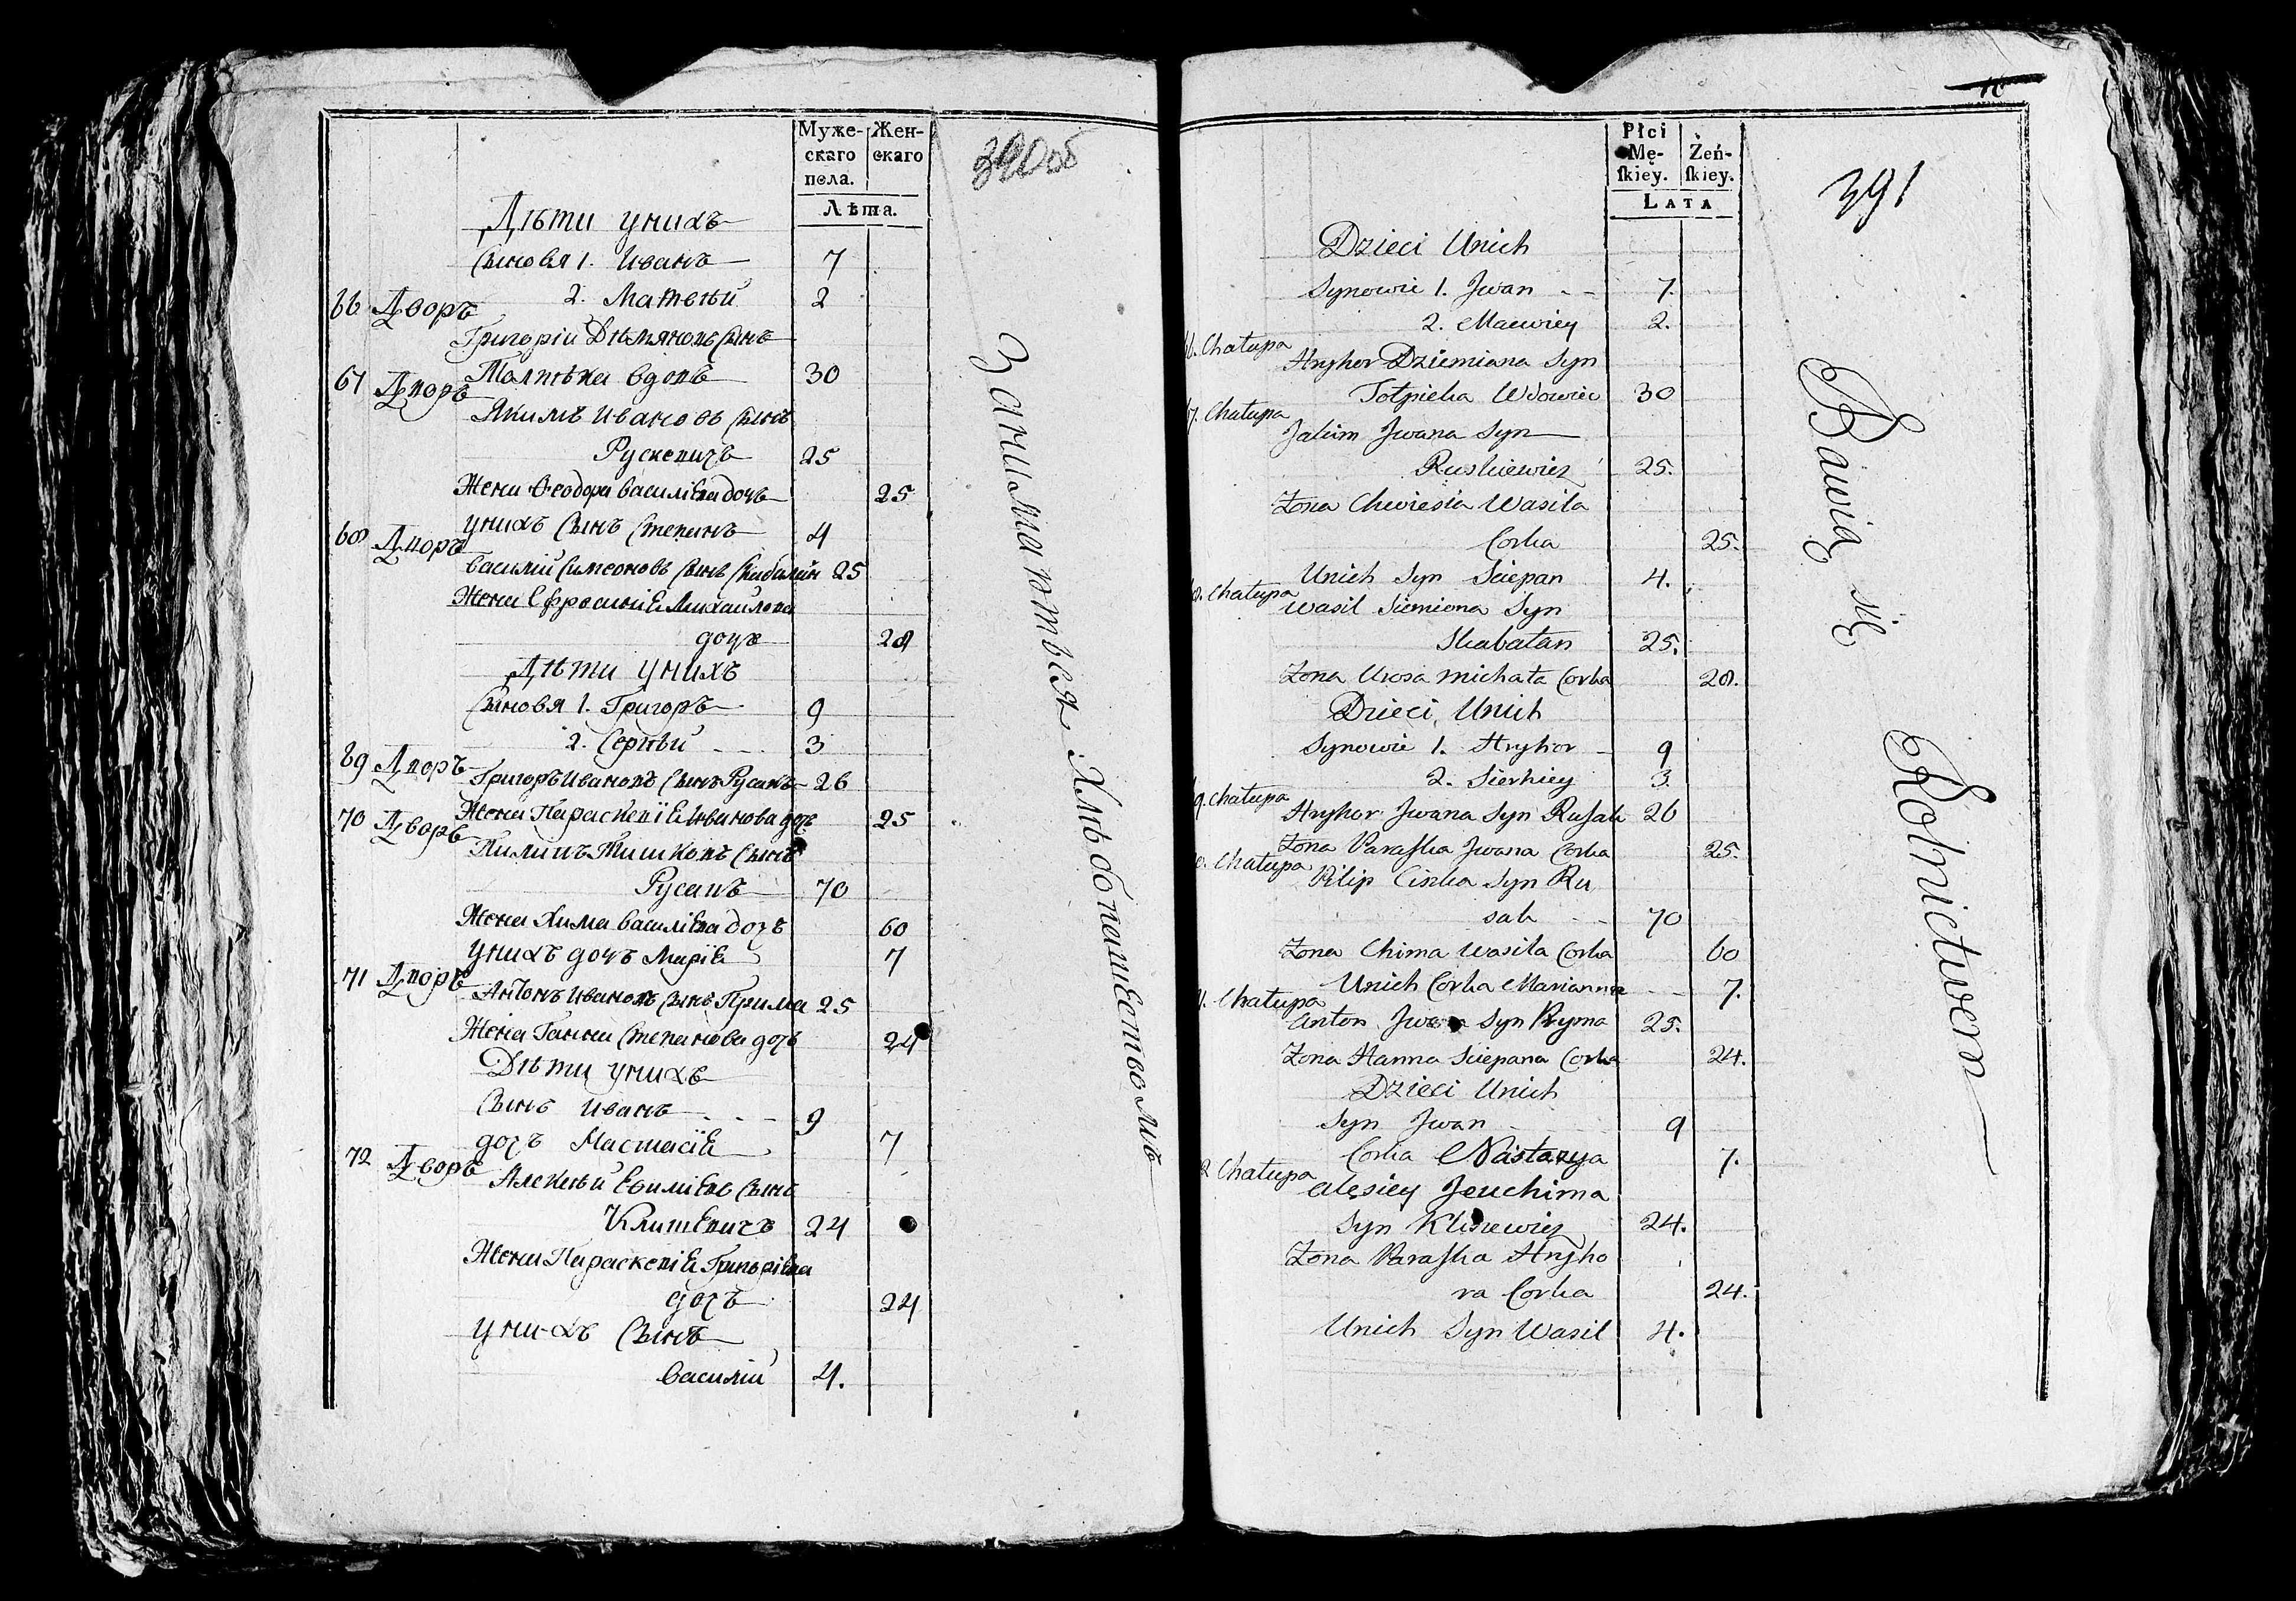 Муже-
скаго
пола.
Жен-
скаго
Лѣта.
390 об
Дѣти у нихъ
Сыновья 1. Иванъ 7
2. Матѣй 2
66 Дворъ
Григорій Дѣмяновъ Сынъ
Толпѣка вдовъ 30
67 Дворъ
Якимъ Ивановъ Сынъ
Рускевичъ 25
Жена Ѳеодора Василіева дочь 25
у нихъ Сынъ Степанъ 4
68 Дворъ
Василій Симеоновъ Сынъ 25
Жена Ефросинія Михайлова
дочь 28
Дѣти у нихъ
Сыновья 1. Григоръ 9
2. Сергѣй 3
69 Дворъ
Григоръ Ивановъ Сынъ Русакъ 26
Жена Параскевія Иванова дочь 25
70 Дворъ
Пилипъ Тишковъ Сынъ
Русакъ 70
Жена Хима Василіева дочь 60
у нихъ дочь Марія 7
71 Дворъ
Антонъ Ивановъ Сынъ Прима 25
Жена Ганна Степанова дочь 24
Дѣти у нихъ
Сынъ Иванъ 9
дочь Настасія 7
72 Дворъ
Алексѣй Евиміевъ Сынъ
Клишевичъ 24
Жена Параскевія Григоріева
дочь 24
у нихъ Сынъ
Василій 4.
Занимаются Хлѣбопашествомъ
10
Płci
Mę-
skiey.
Żeń-
skiey.
LATA
391
Dzieci Unich
Synowie 1. Jwan 7.
2. Maewiey 2.
66. Chałupa
Hryhor Dziemiana Syn
Tołpieka Wdowiec 30
67. Chałupa
Jakim Jwana Syn
Ruskiewicz 25.
Żona Chwiesia Wasila
Corka 25.
Unich Syn Sciepan 4.
8. Chałupa
Wasil Siemiona Syn
Skabałan 25.
Żona Urosa Michała Corka 28.
Dzieci Unich
Synowie 1. Hryhor 9
2. Sierhiey 3.
9. Chałupa
Hryhor Jwana Syn Rusak 26
Żona Paraska Jwana Corka 25.
0. Chałupa
Pilip Ciszka Syn Ru
sak 70
Żona Chima Wasila Corka 60
Unich Corka Marianna 7.
1. Chałupa
Anton Jwana Syn Pryma 25.
Żona Hanna Sciepana Corka 24.
Dzieci Unich
Syn Jwan 9
Corka Nastazya 7.
2 Chałupa
Alęsiey Jeuchima
Syn Kliszewicz 24.
Żona Paraska Hryho
ra Corka 24.
Unich Syn Wasil 4.
Bawią się Rolnictwem